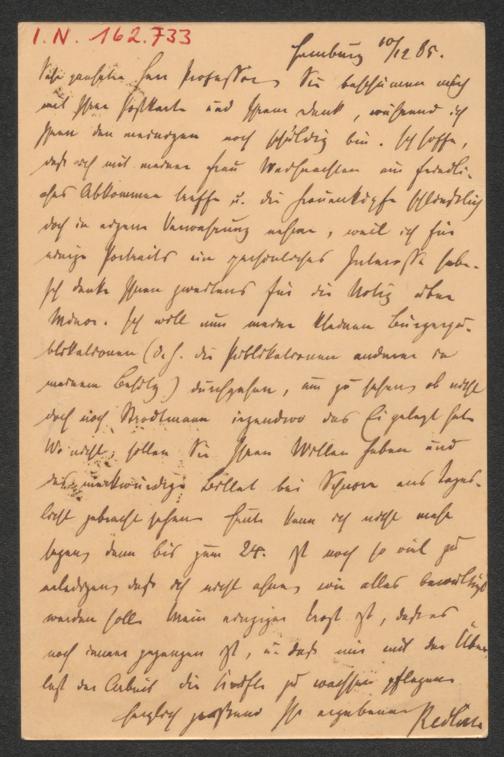 I.N. 162.733
Hamburg 10/12 85.
Sehr geehrter Herr Professor, Sie beschämen mich
mit Ihrer Postkarte und Ihrem Dank, während ich
Ihnen den meinigen noch schuldig bin. Ich hoffe,
daß ich mit meiner Frau Weihnachten ein friedli-
ches Abkommen treffe u. die Frauenköpfe schließlich
doch in eigene Verwahrung nehme, weil ich für
einige Portraits ein persönliches Interesse habe.
Ich danke Ihnen zweitens für die Notiz über
Minor. Ich will nun meine kleinen Bürgerpu-
blikationen (d. h. die Publikationen anderer in
meinem Besitz) durchsehen, um zu sehen, ob nicht
doch noch Strodtmann irgendwo das Ei gelegt hat.
Wo nicht, sollen Sie Ihren Willen haben und
das merkwürdige Billet bei Schnorr ans Tages-
licht gebracht sehen. Heute kann ich nicht mehr
sagen, denn bis zum 24. ist noch so viel zu
erledigen, daß ich nicht ahne, wie alles bewältigt
werden soll. Mein einziger Trost ist, daß es
noch immer gegangen ist, u. daß mir mit der Über-
last der Arbeit die Kräfte zu wachsen pflegen.
Herzlich grüßend Ihr ergebener Redlich